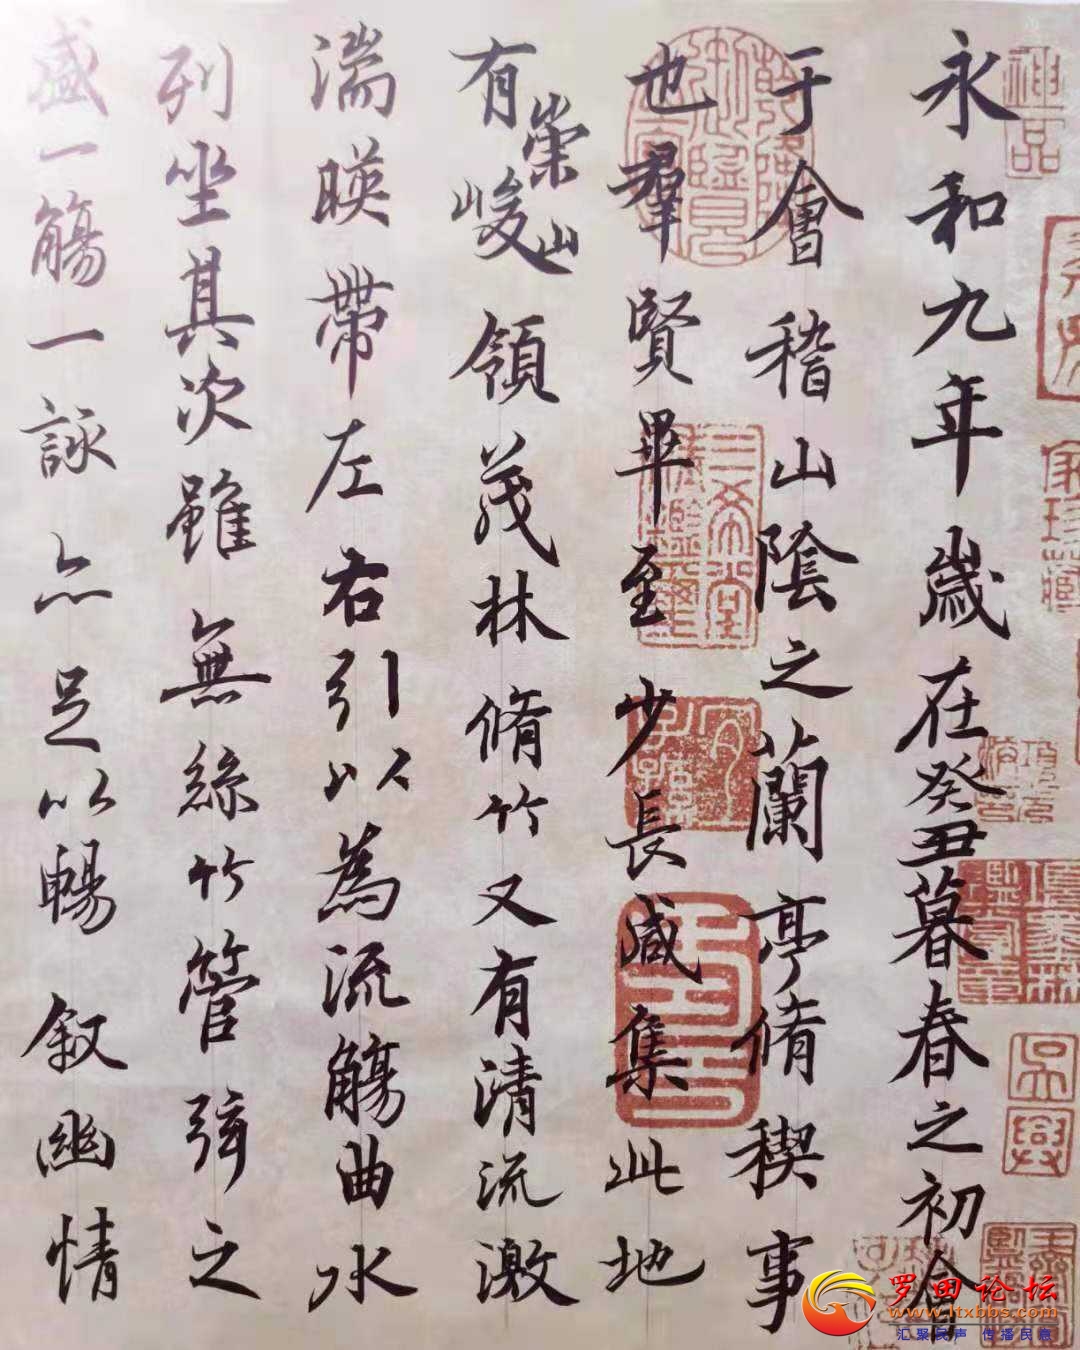 永和九年歲在癸丑暮春之初會
于會稽山陰之蘭亭脩稧事
也羣賢畢至少長咸集此地
有崇山峻領茂林脩竹又有清流激
湍暎帶左右引以為流觴曲水
列坐其次雖無絲竹管弦之
盛一觴一詠亦足以暢叙幽情
神品
三希堂
罗田论坛
www.ltxbbs.com
汇聚民声 传播民意